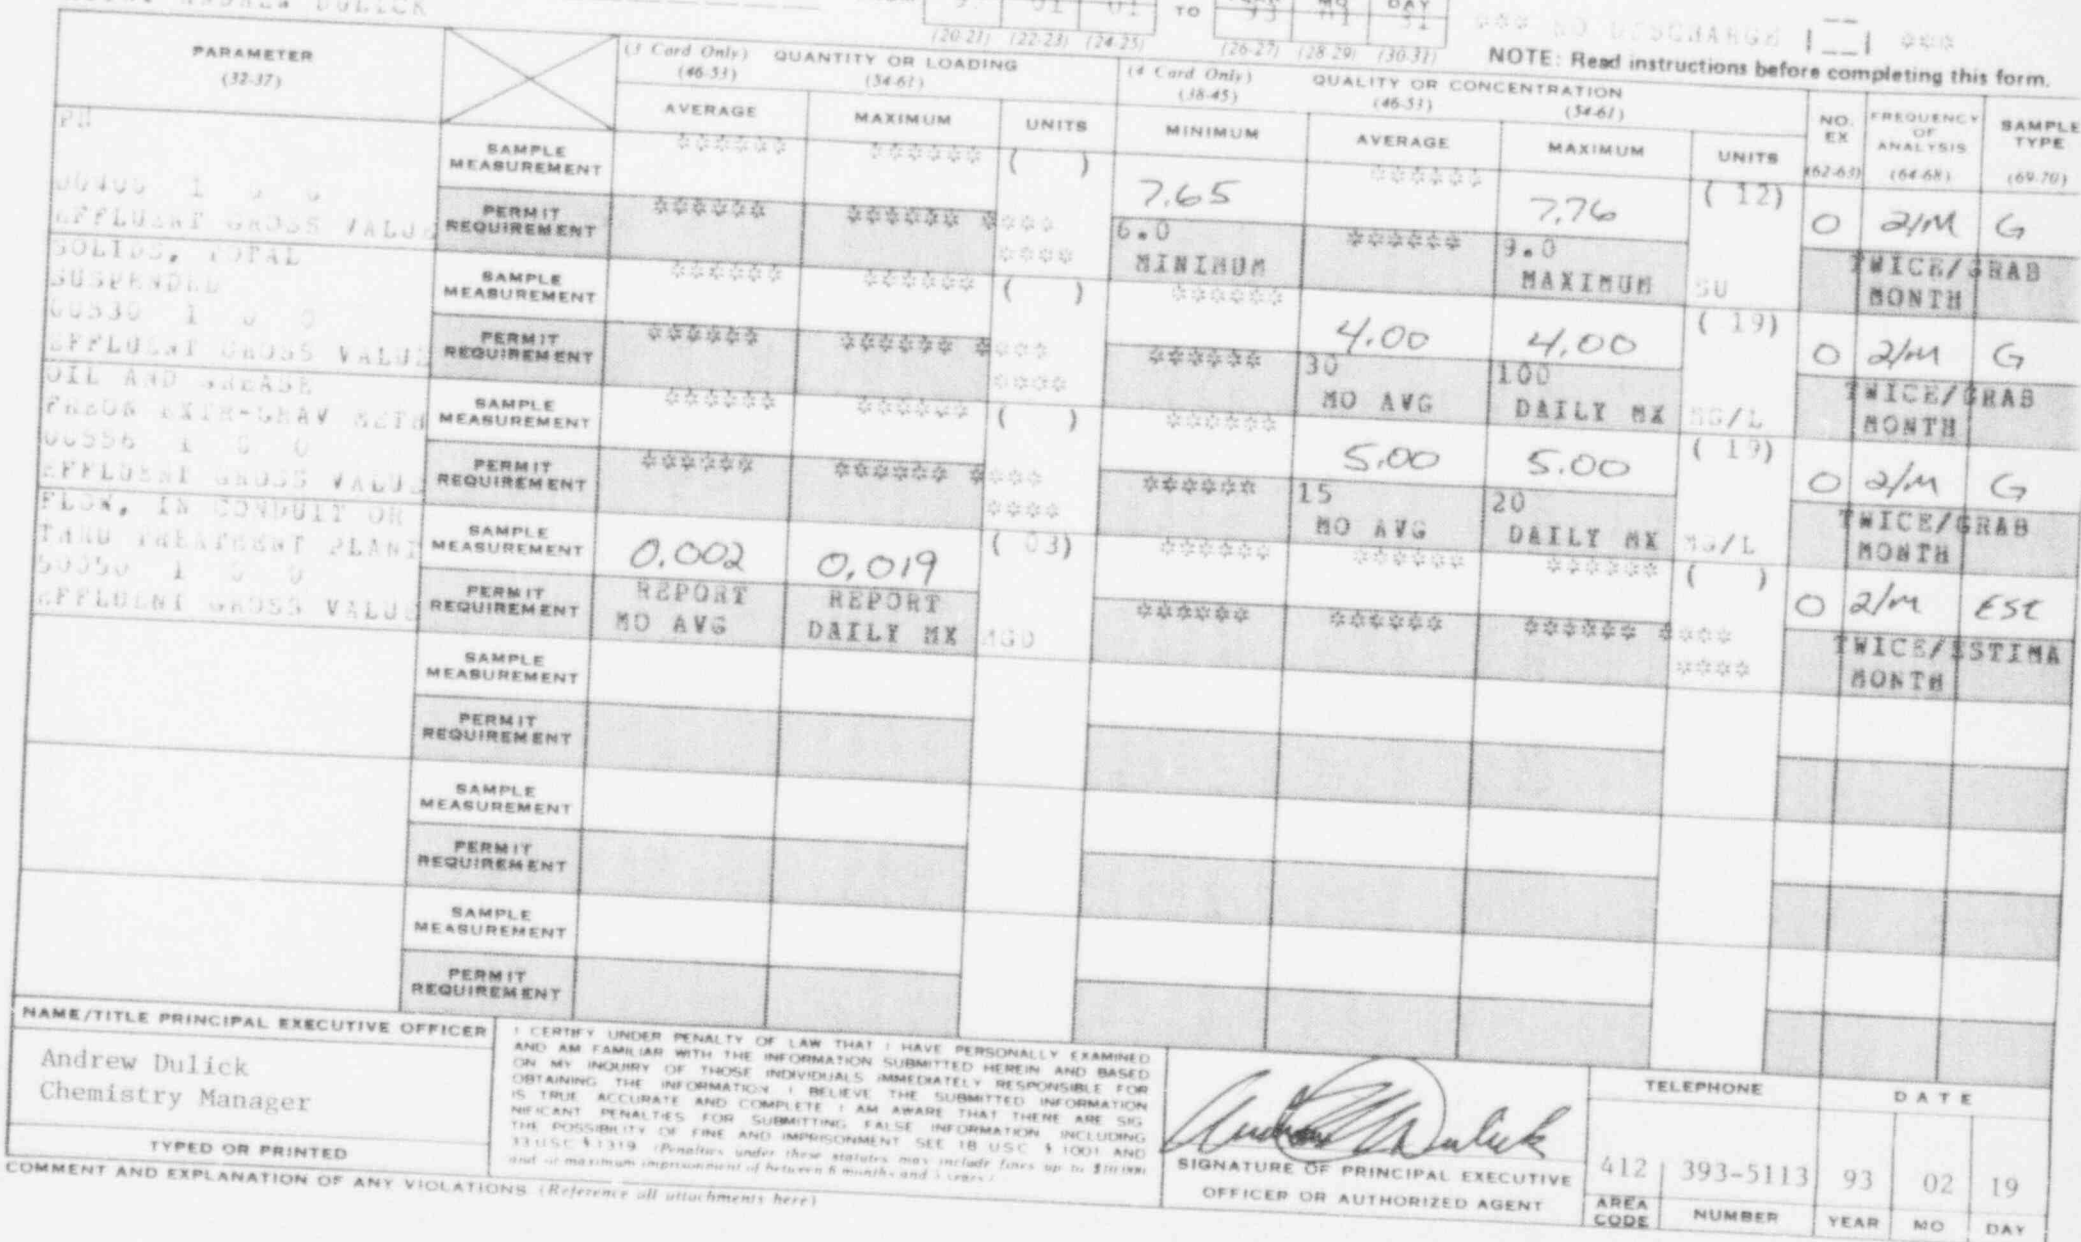 ANDREW DULICK
01 01 TO 93 01 31
MO DAY
(20-21) (22-23) (24-25) (26-27) (28-29) (30-31)
*** NO DISCHARGE |__| ***
NOTE: Read instructions before completing this form.
PARAMETER
(32-37)
(3 Card Only) QUANTITY OR LOADING
(46-53) (54-61)
(4 Card Only) QUALITY OR CONCENTRATION
(38-45) (46-53) (54-61)
AVERAGE MAXIMUM UNITS MINIMUM AVERAGE MAXIMUM UNITS
NO. EX
(62-63)
FREQUENCY OF ANALYSIS
(64-68)
SAMPLE TYPE
(69-70)
PH
00400 1 0 0
EFFLUENT GROSS VALUE
SAMPLE MEASUREMENT ****** ****** ( ) 7.65 ****** 7.76 ( 12) 0 2/M G
PERMIT REQUIREMENT ****** ****** **** 6.0 ****** 9.0 TWICE/GRAB
**** MINIMUM MAXIMUM SU MONTH
SOLIDS, TOTAL
SUSPENDED
00530 1 0 0
EFFLUENT GROSS VALUE
SAMPLE MEASUREMENT ****** ****** ( ) ****** 4.00 4.00 ( 19) 0 2/M G
PERMIT REQUIREMENT ****** ****** **** ****** 30 100 TWICE/GRAB
**** MO AVG DAILY MX MG/L MONTH
OIL AND GREASE
FREON EXTR-GRAV METH
00556 1 0 0
EFFLUENT GROSS VALUE
SAMPLE MEASUREMENT ****** ****** ( ) ****** 5.00 5.00 ( 19) 0 2/M G
PERMIT REQUIREMENT ****** ****** **** ****** 15 20 TWICE/GRAB
**** MO AVG DAILY MX MG/L MONTH
FLOW, IN CONDUIT OR
THRU TREATMENT PLANT
50050 1 0 0
EFFLUENT GROSS VALUE
SAMPLE MEASUREMENT 0.002 0.019 ( 03) ****** ****** ****** ( ) 0 2/M EST
PERMIT REQUIREMENT REPORT REPORT ****** ****** ****** **** TWICE/ESTIMA
MO AVG DAILY MX MGD **** MONTH
SAMPLE MEASUREMENT
PERMIT REQUIREMENT
SAMPLE MEASUREMENT
PERMIT REQUIREMENT
SAMPLE MEASUREMENT
PERMIT REQUIREMENT
NAME/TITLE PRINCIPAL EXECUTIVE OFFICER
Andrew Dulick
Chemistry Manager
TYPED OR PRINTED
I CERTIFY UNDER PENALTY OF LAW THAT I HAVE PERSONALLY EXAMINED
AND AM FAMILIAR WITH THE INFORMATION SUBMITTED HEREIN AND BASED
ON MY INQUIRY OF THOSE INDIVIDUALS IMMEDIATELY RESPONSIBLE FOR
OBTAINING THE INFORMATION I BELIEVE THE SUBMITTED INFORMATION
IS TRUE ACCURATE AND COMPLETE I AM AWARE THAT THERE ARE SIG
NIFICANT PENALTIES FOR SUBMITTING FALSE INFORMATION INCLUDING
THE POSSIBILITY OF FINE AND IMPRISONMENT SEE 18 USC § 1001 AND
33 USC § 1319 (Penalties under these statutes may include fines up to $10,000
and or maximum imprisonment of between 6 months and 5 years)
Andrew Dulick
SIGNATURE OF PRINCIPAL EXECUTIVE
OFFICER OR AUTHORIZED AGENT
TELEPHONE
412 393-5113
AREA CODE NUMBER
DATE
93 02 19
YEAR MO DAY
COMMENT AND EXPLANATION OF ANY VIOLATIONS (Reference all attachments here)